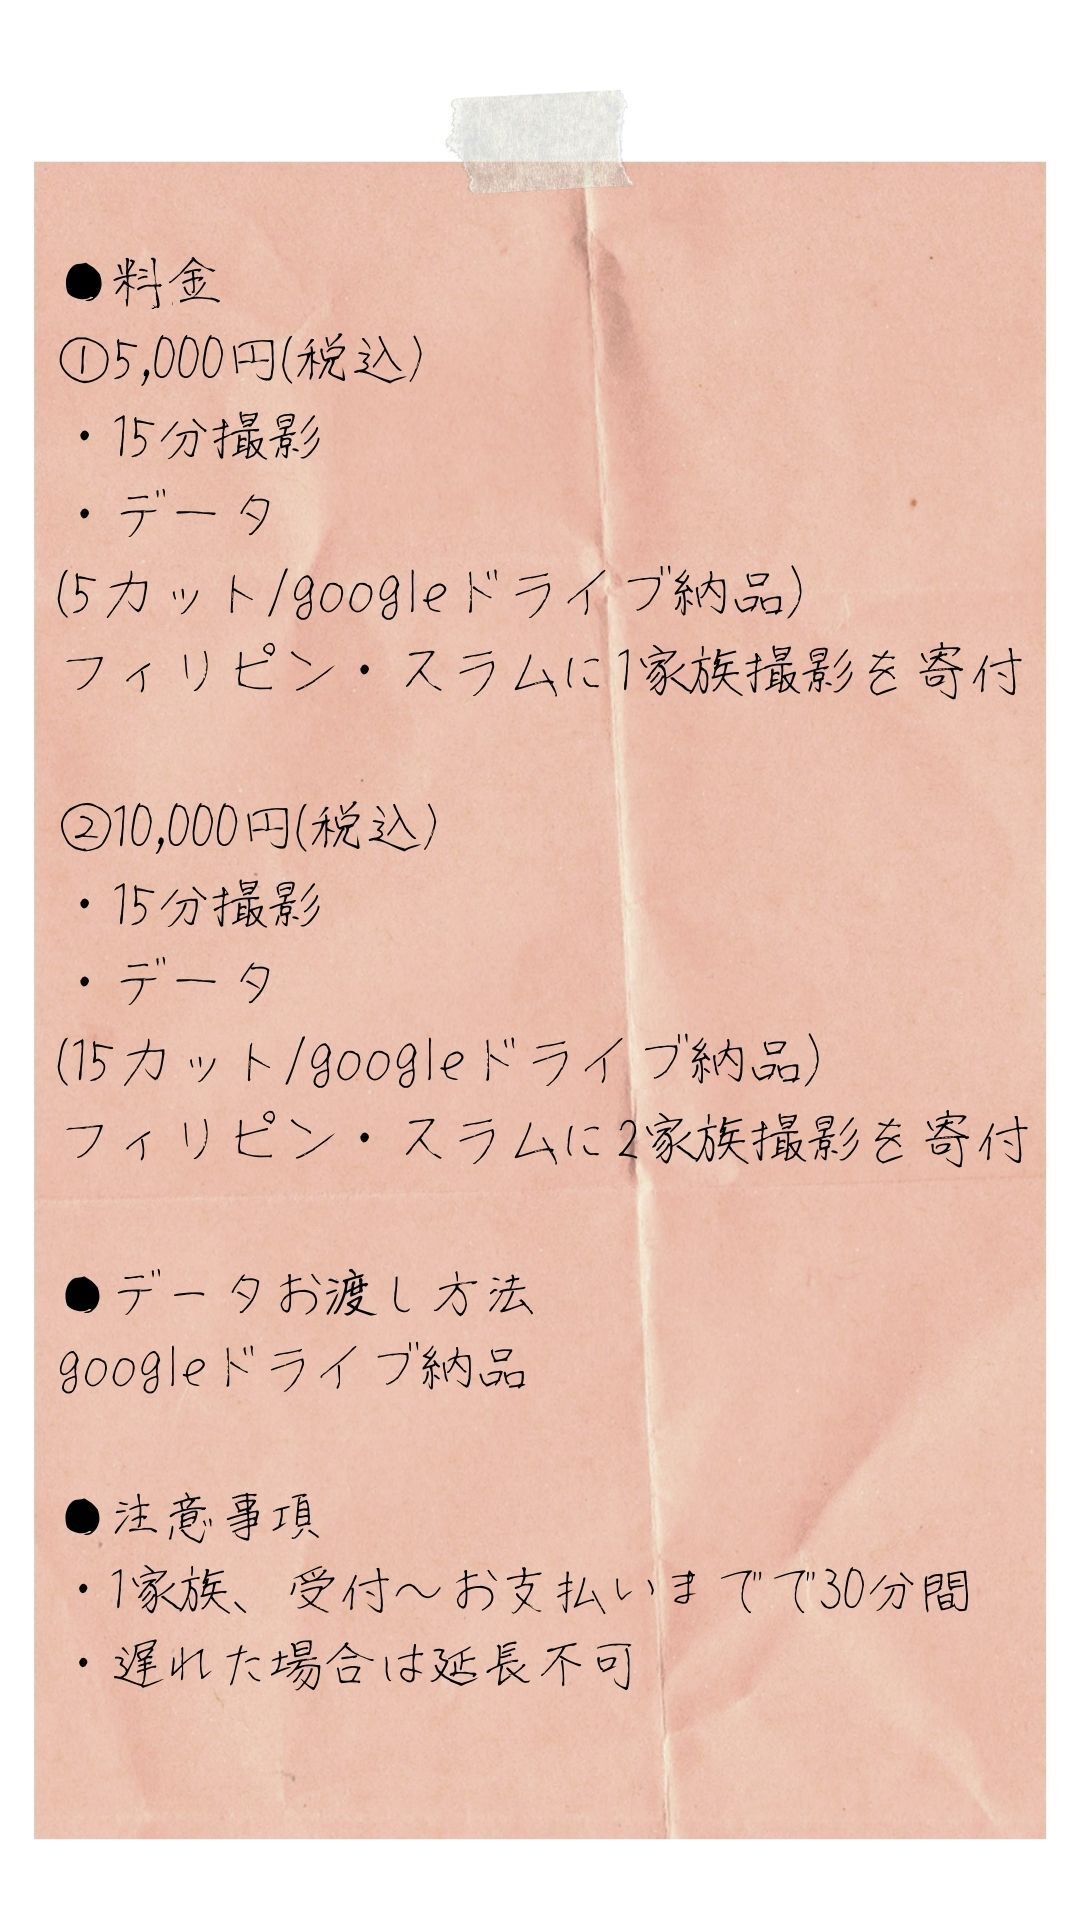 ●料金
①5,000円(税込)
・15分撮影
・データ
(5カット/googleドライブ納品)
フィリピン・スラムに1家族撮影を寄付
②10,000円(税込)
・15分撮影
・データ
(15カット/googleドライブ納品)
フィリピン・スラムに2家族撮影を寄付
●データお渡し方法
googleドライブ納品
●注意事項
・1家族、受付～お支払いまでで30分間
・遅れた場合は延長不可